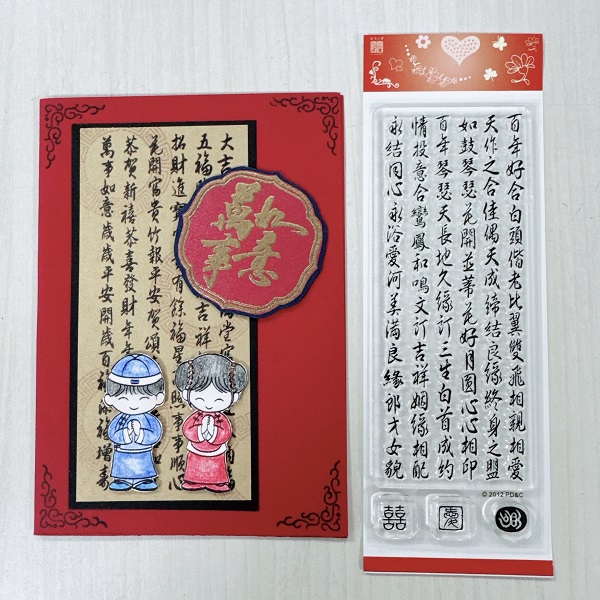 大吉
五福 堂
吉祥
招財進寶 有餘福星 照事事順心
花開富貴竹報平安賀頌
恭賀新禧恭喜發財年年
萬事如意歲歲平安開歲百 福增壽
萬事如意
百年好合白頭偕老比翼雙飛相親相愛
天作之合佳偶天成締結良緣終身之盟
如鼓琴瑟花開並蒂花好月圓心心相印
百年琴瑟天長地久緣訂三生白首成約
情投意合鸞鳳和鳴文訂吉祥姻緣相配
永結同心永浴愛河美滿良緣郎才女貌
© 2012 PD&C
囍 愛